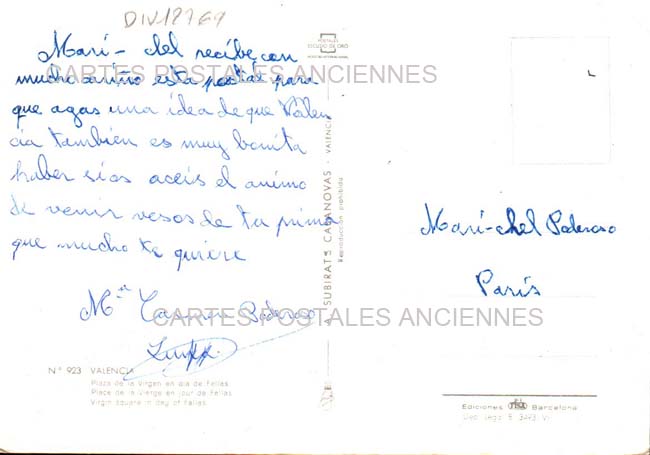 DIV12769
Mari-chel recibe con
mucho cariño esta postal para
que agas una idea de que Valen
cia tambien es muy bonita
haber si os aceis el animo
de venir vesos de tu prima
que mucho te quiere
Mª Carmen Poderoso
Nº 923 VALENCIA
Plaza de la Virgen en dia de Fallas
Place de la Vierge en jour de Fallas
Virgin Square in day of Fallas
POSTALES
ESCUDO DE ORO
SUBIRATS CASANOVAS - VALENCIA
Reproducción prohibida
Mari-chel Poderoso
París
Ediciones Barcelona
CARTES POSTALES ANCIENNES
CARTES POSTALES ANCIENNES